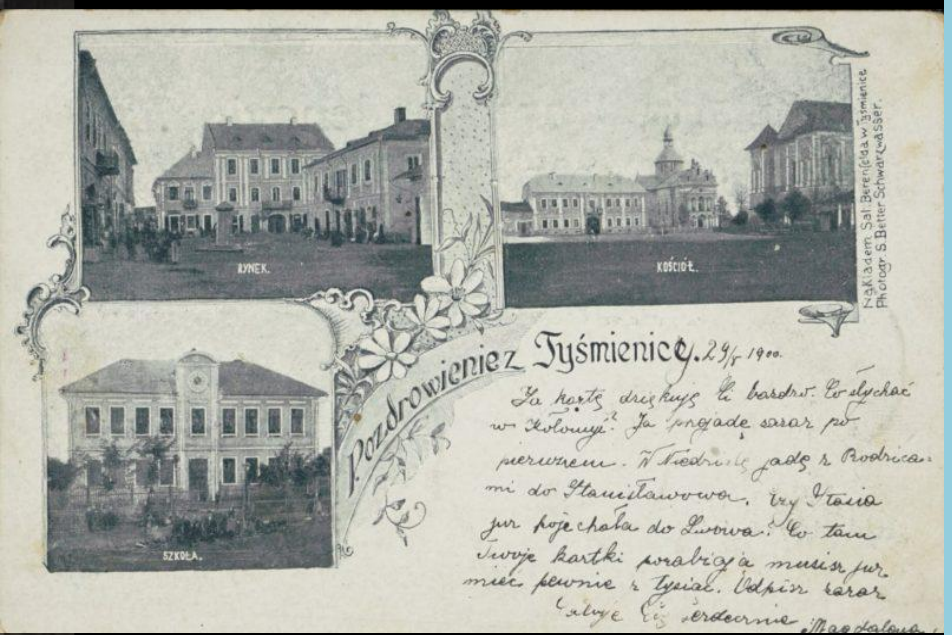 RYNEK.
KOŚCIÓŁ.
Nakładem Sal. Berenfelda w Tyśmienicy
Photogr. S. Better Schwarzwasser.
SZKOŁA.
Pozdrowienie z Tyśmienicy. 29/5 1900.
Za kartę dziękuję Ci bardzo. Co słychać
w Kołomyi? Ja przyjadę zaraz po
pierwszem. W Niedzielę jadę z Rodzica-
mi do Stanisławowa. Czy Stasia
już pojechała do Lwowa? Co tam
Twoje kartki porabiają musisz już
mieć pewnie z tysiąc. Odpisz zaraz
Całuję Cię serdecznie Magdalena